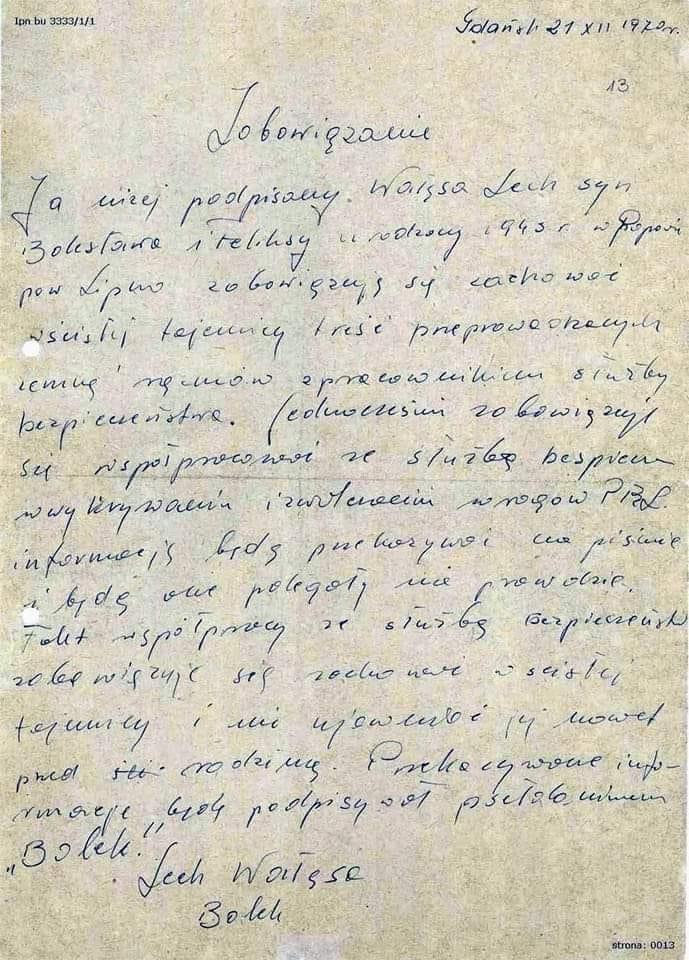 Ipn bu 3333/1/1
Gdańsk 21 XII 1970r.
13
Zobowiązanie
Ja niżej podpisany. Wałęsa Lech syn
Bolesława i Feliksy urodzony 1943 r. w Popowie
pow Lipno zobowiązują się zachować
wścisłej tajemnicy treść przeprowadzonych
zemną rozmów z pracownikiem służby
bezpieczeństwa. Jednocześnie zobowiązuje
się współpracować ze służbą bezpiecz
w wykrywaniu i zwalczaniu wrogów PRL.
informację będę przekazywać na piśmie
i będą one polegały na prawdzie.
Fakt współpracy ze służbą bezpieczeńst
zobowiązuje się zachować w ścisłej
tajemnicy i nie ujawniać jej nawet
przed rodziną. Przekazywane info-
rmacje będę podpisywał pseudonimem
„Bolek."
Lech Wałęsa
Bolek
strona: 0013